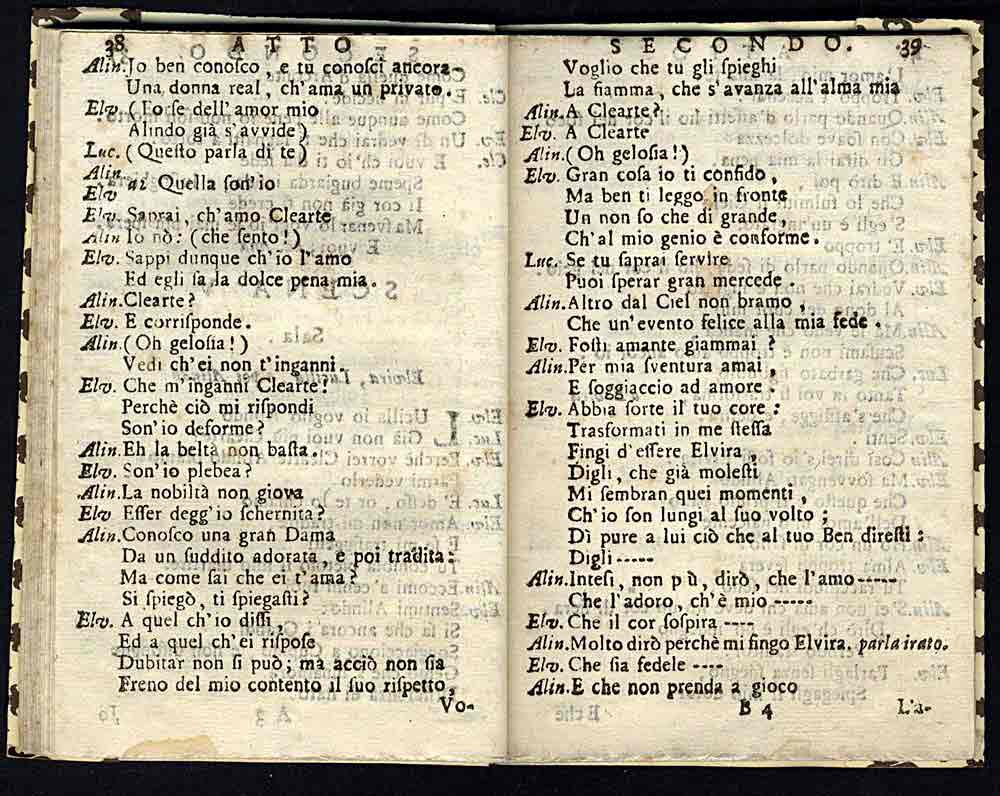 38 ATTO
Alin. Jo ben conoſco, e tu conoſci ancora
Una donna real, ch'ama un privato.
Elv. (Forſe dell'amor mio
Alindo già s'avvide)
Luc. (Queſto parla di te)
Alin.
Elv a2 Quella ſon'io
Elv. Saprai, ch'amo Clearte
Alin Io nò: (che ſento!)
Elv. Sappi dunque ch'io l'amo
Ed egli ſa la dolce pena mia.
Alin. Clearte?
Elv. E corriſponde.
Alin. (Oh geloſia!)
Vedi ch'ei non t'inganni.
Elv. Che m'inganni Clearte?
Perchè ciò mi riſpondi
Son'io deforme?
Alin. Eh la beltà non baſta.
Elv. Son'io plebea?
Alin. La nobiltà non giova
Elv Eſſer degg'io ſchernita?
Alin. Conoſco una gran Dama
Da un ſuddito adorata, e poi tradita:
Ma come ſai che ei t'ama?
Si ſpiegò, ti ſpiegaſti?
Elv. A quel ch'io diſſi
Ed a quel ch'ei riſpoſe
Dubitar non ſi può; ma acciò non ſia
Freno del mio contento il ſuo riſpetto,
Vo-
SECONDO. 39
Voglio che tu gli ſpieghi
La fiamma, che s'avanza all'alma mia
Alin. A Clearte?
Elv. A Clearte
Alin. (Oh geloſia!)
Elv. Gran coſa io ti confido,
Ma ben ti leggo in fronte
Un non ſo che di grande,
Ch'al mio genio è conforme.
Luc. Se tu ſaprai ſervire
Puoi ſperar gran mercede.
Alin. Altro dal Ciel non bramo,
Che un'evento felice alla mia fede.
Elv. Foſti amante giammai?
Alin. Per mia ſventura amai,
E ſoggiaccio ad amore.
Elv. Abbia ſorte il tuo core:
Trasformati in me ſteſſa
Fingi d'eſſere Elvira,
Digli, che già moleſti
Mi ſembran quei momenti,
Ch'io ſon lungi al ſuo volto;
Dì pure a lui ciò che al tuo Ben direſti:
Digli -----
Alin. Inteſi, non più, dirò, che l'amo-----
Che l'adoro, ch'è mio -----
Elv. Che il cor ſoſpira ----
Alin. Molto dirò perchè mi fingo Elvira. parla irato.
Elv. Che ſia fedele ----
Alin. E che non prenda a gioco
B 4 L'a-